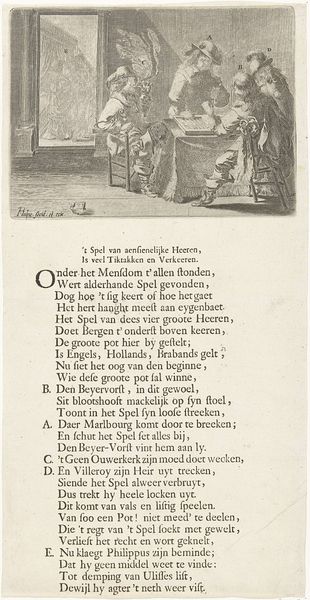 E
A
D
B
't Spel van aensienelijke Heeren,
Is veel Tiktakken en Verkeeren.
Onder het Mensdom t'allen stonden,
Wert alderhande Spel gevonden,
Dog hoe 't sig keert of hoe het gaet
Het hert hanght meest aen eygenbaet.
Het Spel van dees vier groote Heeren,
Doet Bergen t'onderst boven keeren,
De groote pot hier by gestelt;
Is Engels, Hollands, Brabands gelt,
Nu siet het oog van den beginne,
Wie dese groote pot sal winne,
B. Den Beyervorst, in dit gewoel,
Sit blootshooft makelijk op syn stoel,
Toont in het Spel syn loose streeken,
A. Daer Marlbourg komt door te breeken;
En schut het Spel set alles bij,
Den Beyer-Vorst vint hem aan ly.
C. 't Geen Ouwerkerk zijn moed doet wecken,
D. En Villeroy zijn Heir uyt trecken,
Siende het Spel alweer verbruyt,
Dus trekt hy heele locken uyt.
Dit komt van vals en listig speelen.
Van soo een Pot! niet meed' te deelen,
Die 't regt van 't Spel soekt met gewelt,
Verliest het recht en wort geknelt,
E. Nu klaegt Philippus zijn beminde;
Dat hy geen middel weet te vinde:
Tot demping van Ulisses list,
Dewijl hy agter 't neth weer vist.